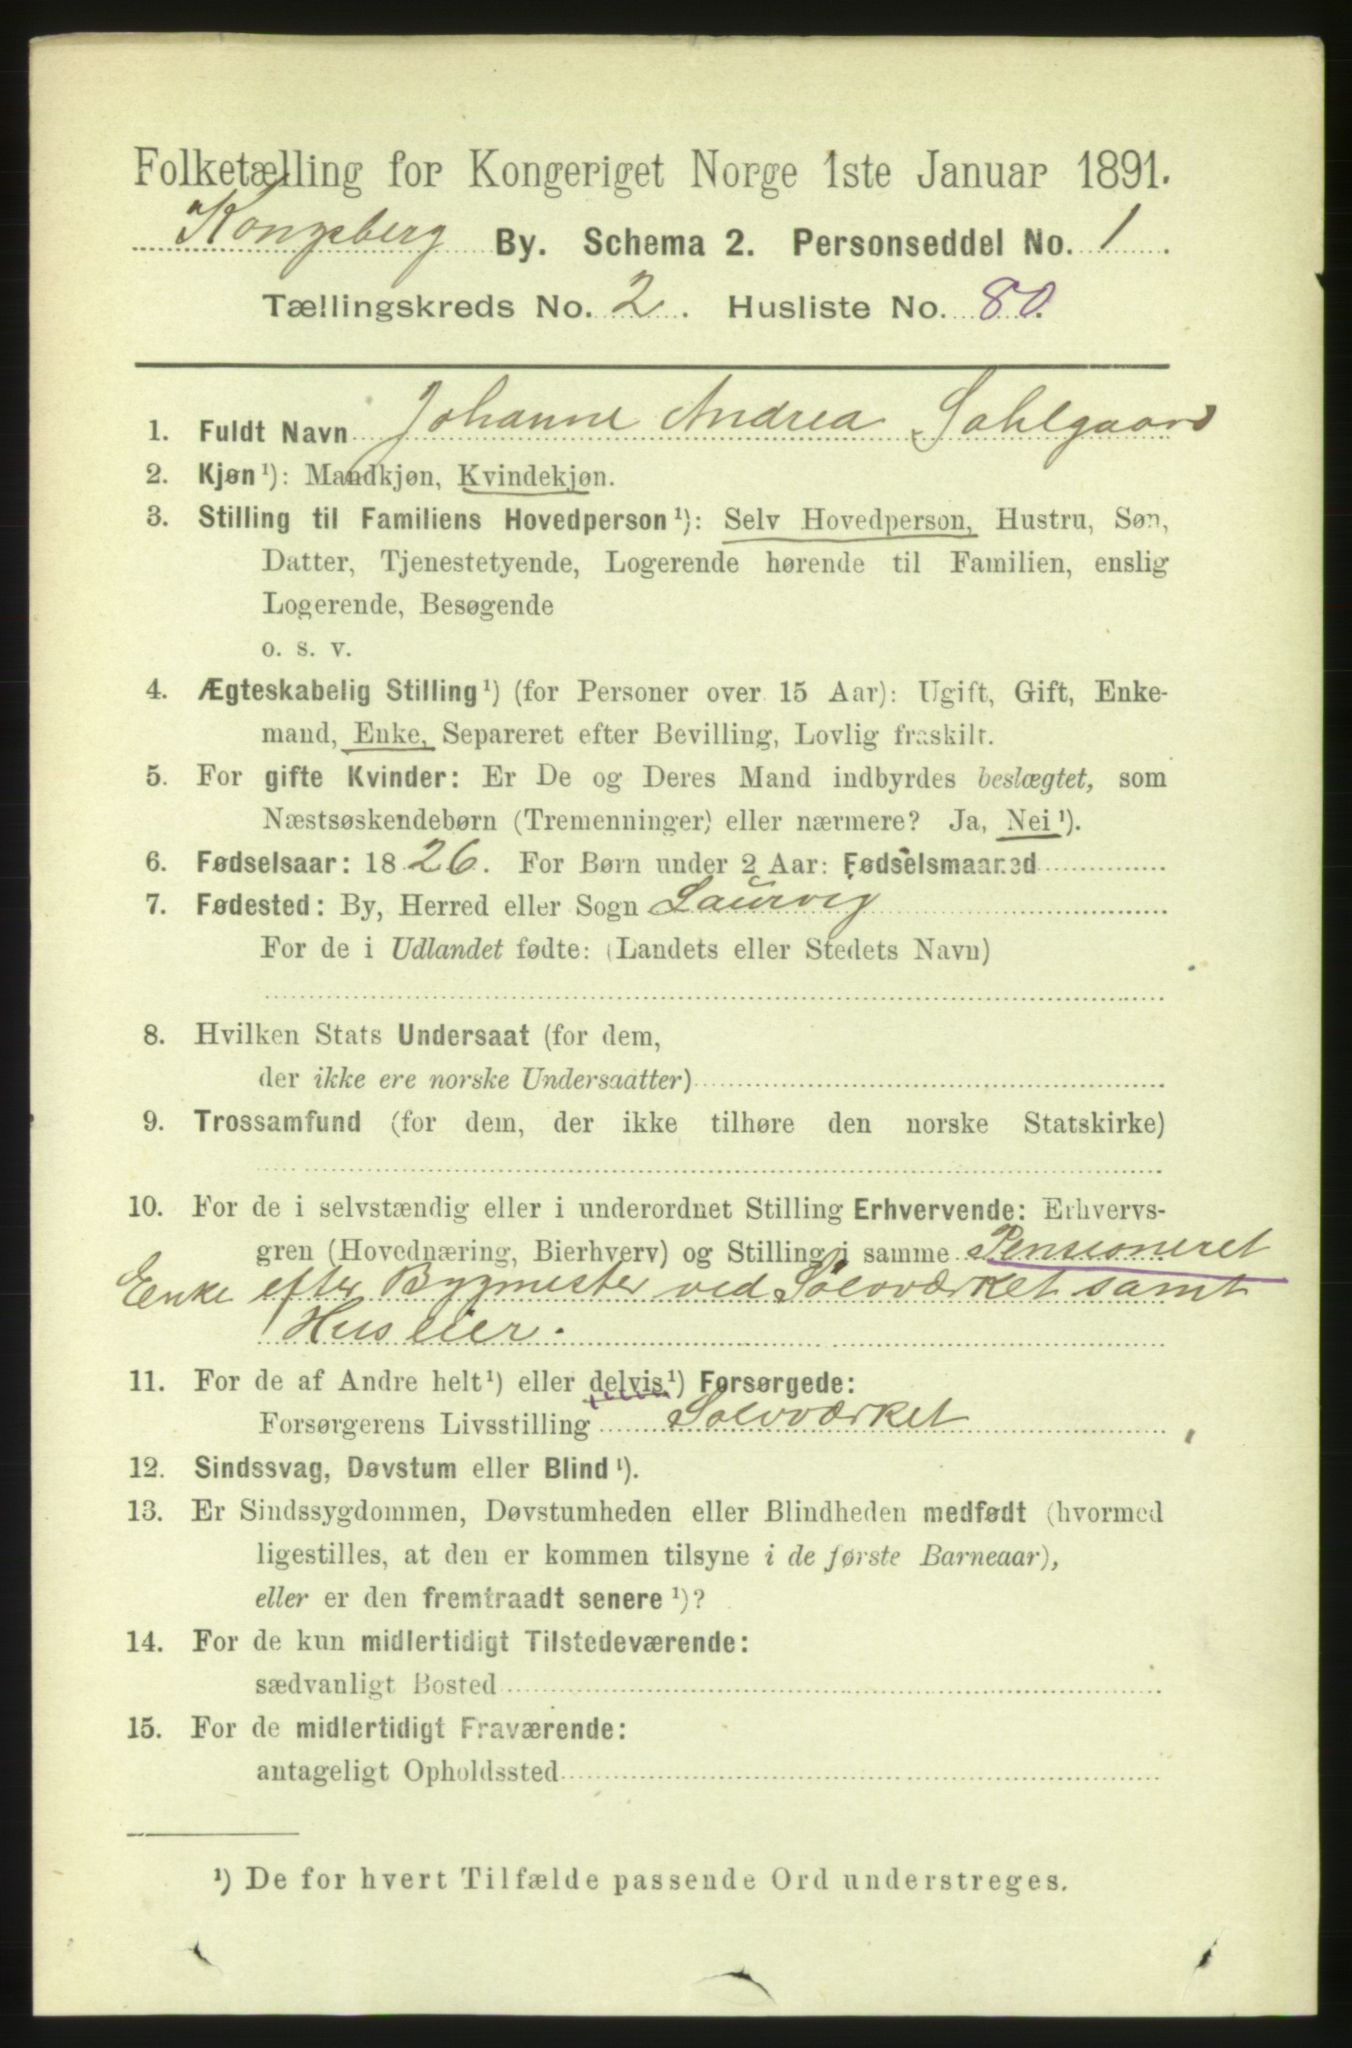 Folketælling for Kongeriget Norge 1ste Januar 1891.
Kongsberg By. Schema 2. Personseddel No. 1.
Tællingskreds No. 2. Husliste No. 80.
1. Fuldt Navn Johanne Andrea Sahlgaard
2. Kjøn¹): Mandkjøn, Kvindekjøn.
3. Stilling til Familiens Hovedperson¹): Selv Hovedperson, Hustru, Søn,
Datter, Tjenestetyende, Logerende hørende til Familien, enslig
Logerende, Besøgende
o. s. v.
4. Ægteskabelig Stilling¹) (for Personer over 15 Aar): Ugift, Gift, Enke-
mand, Enke, Separeret efter Bevilling, Lovlig fraskilt.
5. For gifte Kvinder: Er De og Deres Mand indbyrdes beslægtet, som
Næstsøskendebørn (Tremenninger) eller nærmere? Ja, Nei¹).
6. Fødselsaar: 1826. For Børn under 2 Aar: Fødselsmaaned
7. Fødested: By, Herred eller Sogn Laurvig
For de i Udlandet fødte: (Landets eller Stedets Navn)
8. Hvilken Stats Undersaat (for dem,
der ikke ere norske Undersaatter)
9. Trossamfund (for dem, der ikke tilhøre den norske Statskirke)
10. For de i selvstændig eller i underordnet Stilling Erhvervende: Erhvervs-
gren (Hovednæring, Bierhverv) og Stilling i samme Pensioneret
Enke efter Bygmester ved Sølvværket samt
Huseier.
11. For de af Andre helt¹) eller delvis¹) Forsørgede:
Forsørgerens Livsstilling Sølvværket
12. Sindssvag, Døvstum eller Blind¹).
13. Er Sindssygdommen, Døvstumheden eller Blindheden medfødt (hvormed
ligestilles, at den er kommen tilsyne i de første Barneaar),
eller er den fremtraadt senere¹)?
14. For de kun midlertidigt Tilstedeværende:
sædvanligt Bosted
15. For de midlertidigt Fraværende:
antageligt Opholdssted
¹) De for hvert Tilfælde passende Ord understreges.